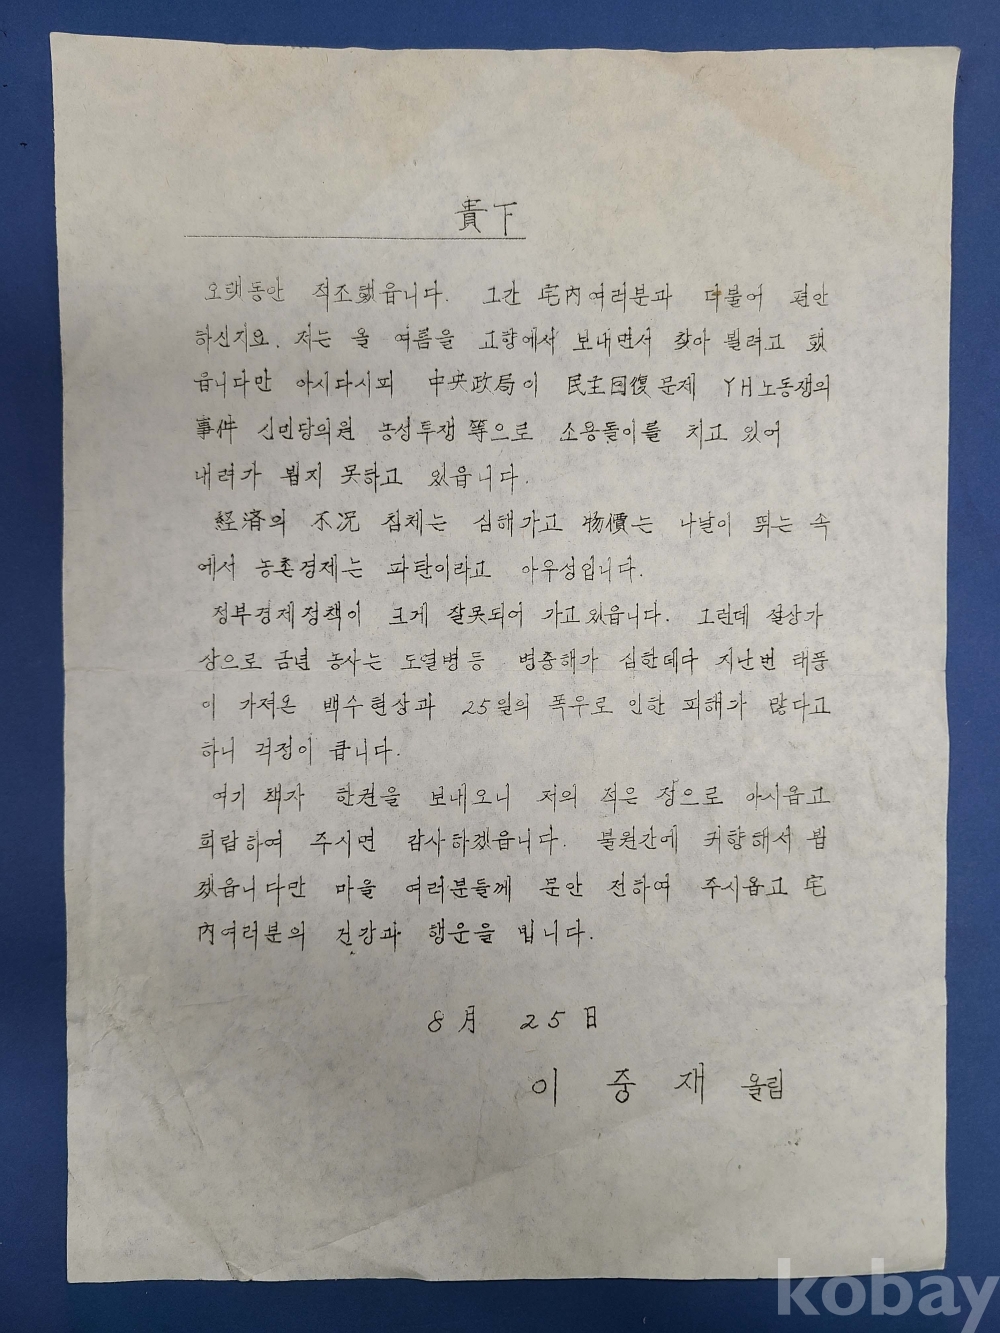 貴下
오랫동안 적조했읍니다. 그간 宅內여러분과 더불어 편안
하신지요. 저는 올 여름을 고향에서 보내면서 찾아 뵐려고 했
읍니다만 아시다시피 中央政局이 民主回復문제 YH노동쟁의
事件 신민당의원 농성투쟁等으로 소용돌이를 치고 있어
내려가 뵙지 못하고 있읍니다.
経済의 不況 침체는 심해가고 物價는 나날이 뛰는 속
에서 농촌경제는 파탄이라고 아우성입니다.
정부경제정책이 크게 잘못되어 가고있읍니다. 그런데 설상가
상으로 금년 농사는 도열병등 병충해가 심한데다 지난번 태풍
이 가져온 백수현상과 25일의 폭우로 인한 피해가 많다고
하니 걱정이 큽니다.
여기 책자 한권을 보내오니 저의 적은 정으로 아시옵고
희람하여 주시면 감사하겠읍니다. 불원간에 귀향해서 뵙
겠읍니다만 마을 여러분들께 문안 전하여 주시옵고 宅
內여러분의 건강과 행운을 빕니다.
8月 25日
이중재 올림
kobay